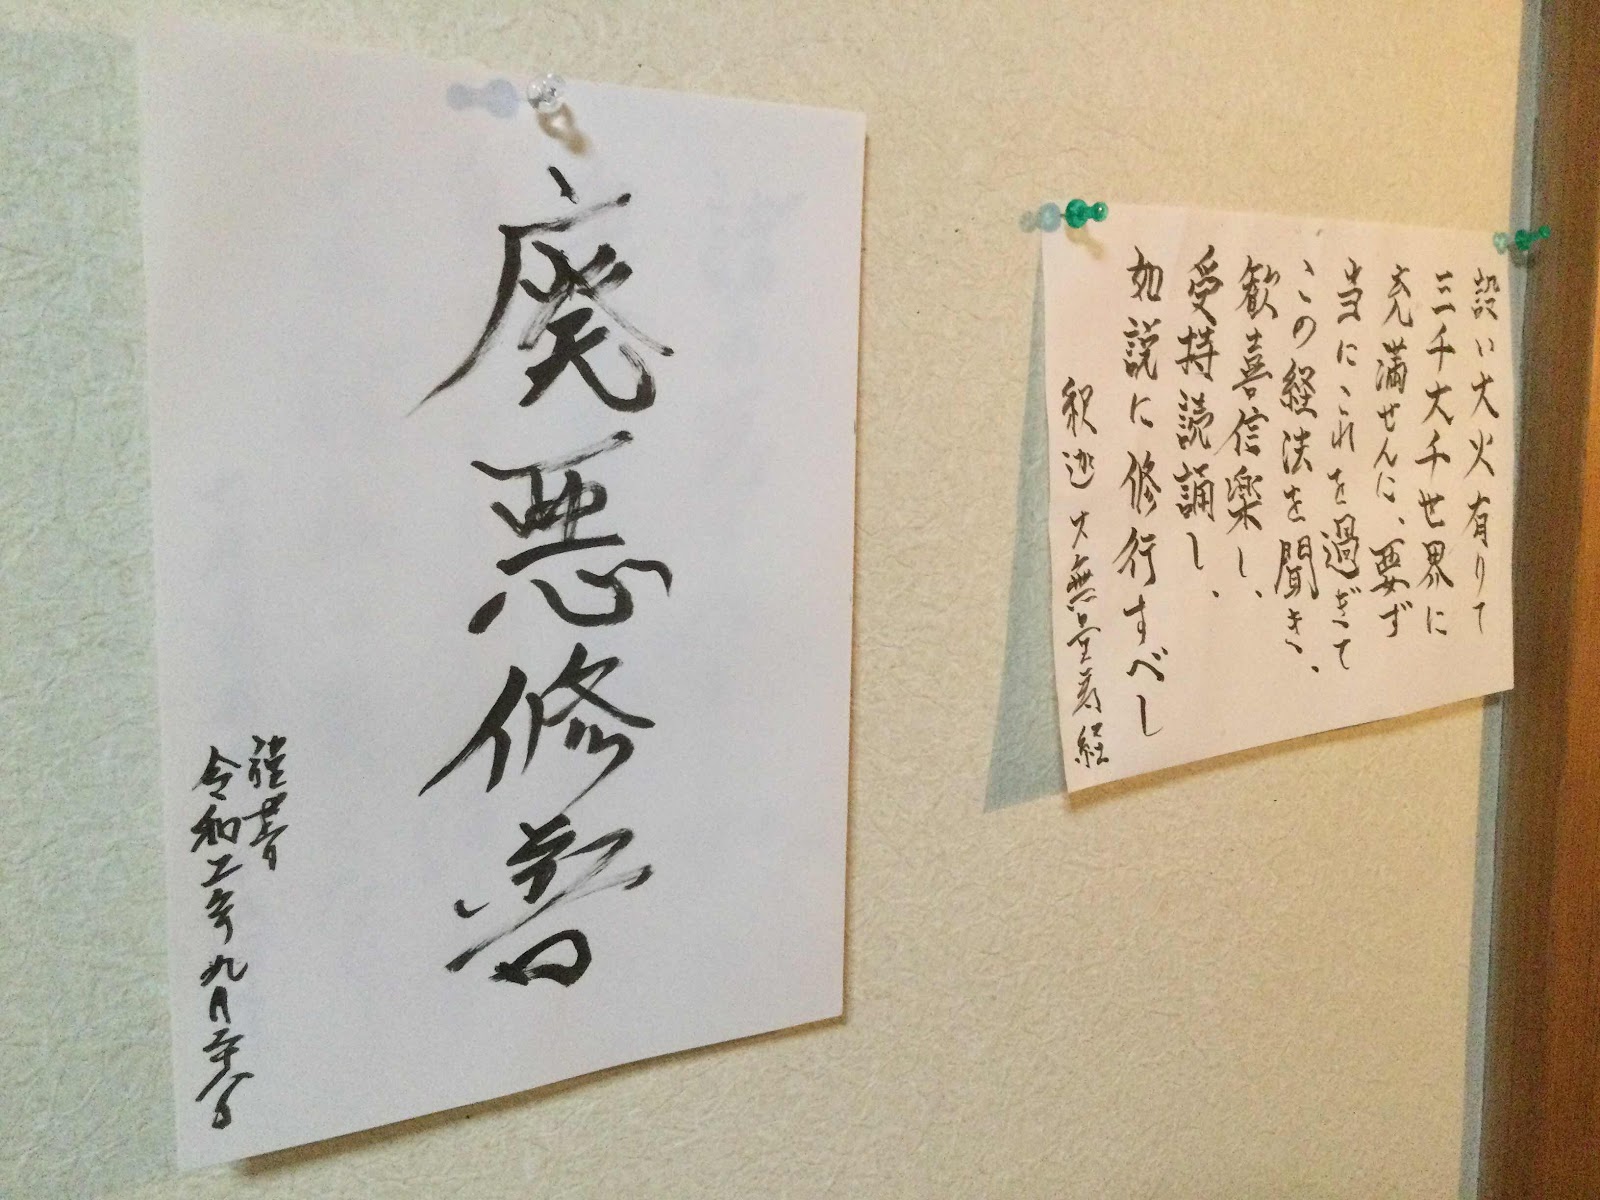 廃悪修善
謹書
令和二年九月
設い大火有りて
三千大千世界に
充満せんに、要ず
当にこれを過ぎて
この経法を聞き、
歓喜信楽し、
受持読誦し、
如説に修行すべし
釈迦 大無量寿経